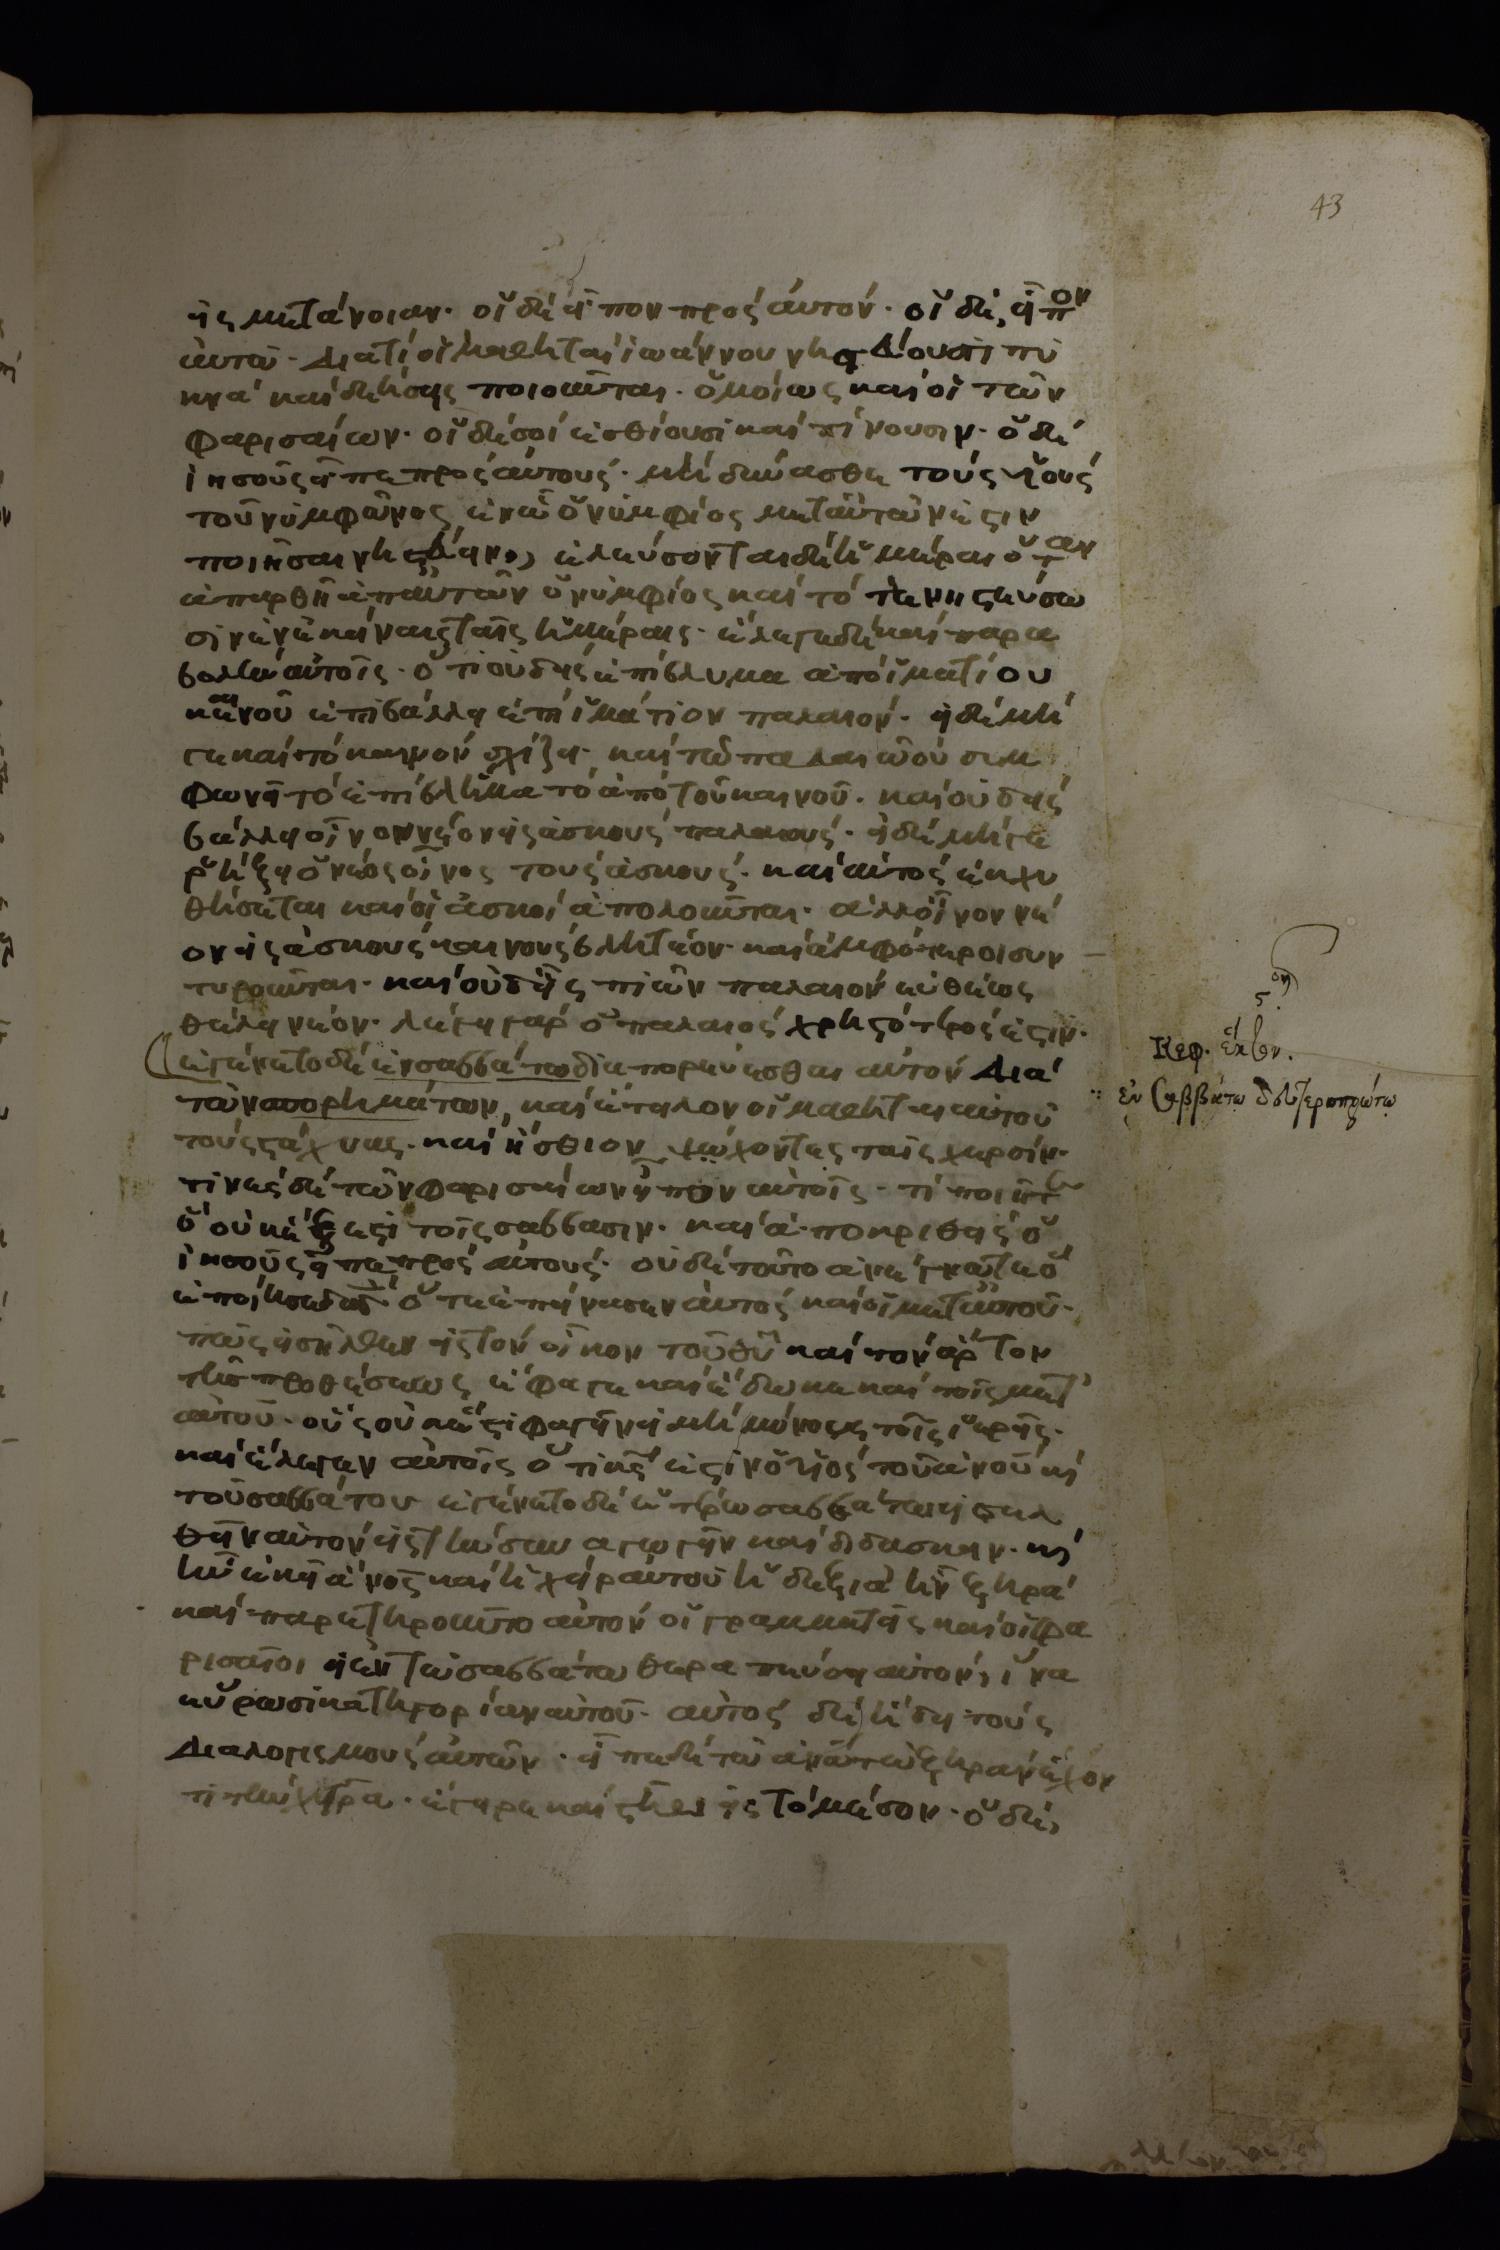 43
εἰς μετάνοιαν· οἱ δὲ εἶπον πρὸς αὐτόν· οἱ δὲ, εἶπον
αὐτῶ· Διατί οἱ μαθηταὶ ἰωάννου νηστεύουσι πυ
κνὰ καὶ δεήσεις ποιοῦνται· ὁμοίως καὶ οἱ τῶν
φαρισαίων· οἱ δὲ σοὶ ἐσθίουσι καὶ πίνουσιν· ὁ δὲ
ἰησοῦς εἶπε πρὸς αὐτούς· μὴ δύνασθε τοὺς υἱοὺς
τοῦ νυμφῶνος ἐν ὧ ὁ νυμφίος μετ αὐτῶν ἐστιν
ποιῆσαι νηστεύειν, ἐλεύσονται δὲ ἡμέραι ὅταν
ἀπαρθῆ ἀπ αὐτῶν ὁ νυμφίος καὶ τότε νηστεύσω
σιν ἐν ἐκείναις ταῖς ἡμέραις· ἔλεγε δὲ καὶ παρα
βολὴν αὐτοῖς· ὅτι οὐδεὶς ἐπίβλυμα ἀπὸ ἱματίου
καινοῦ ἐπιβάλλει ἐπὶ ἱμάτιον παλαιόν· εἰ δὲ μή
γε καὶ τὸ καινὸν σχίζει· καὶ τῶ παλαιῶ οὐ συμ
φωνεῖ τὸ ἐπίβλημα τὸ ἀπὸ τοῦ καινοῦ· καὶ οὐδεὶς
βάλλει οἶνον νέον εἰς ἀσκοὺς παλαιούς· εἰ δὲ μήγε
ῥήξει ὁ νέος οἶνος τοὺς ἀσκούς· καὶ αὐτὸς ἐκχυ
θήσεται καὶ οἱ ἀσκοὶ ἀπολοῦνται· ἀλλ οἶνον νέ
ον εἰς ἀσκοὺς καινοὺς βλητέον· καὶ ἀμφότεροι συν
τηροῦνται· καὶ οὐδεὶς πιὼν παλαιὸν εὐθέως
θέλει νέον· λέγει γὰρ ὁ παλαιὸς χρηστότερός ἐστιν·
ἐγένετο δὲ ἐν σαββάτω διαπορεύεσθαι αὐτὸν Διὰ
τῶν σπορημάτων, καὶ ἔτιλλον οἱ μαθηταὶ αὐτοῦ
τοὺς στάχυας· καὶ ἤσθιον ψώχοντες ταῖς χερσίν·
τινὲς δὲ τῶν φαρισαίων εἶπον αὐτοῖς· τί ποιεῖτε
ὃ οὐκ ἔξεστι τοῖς σάββασιν· καὶ ἀποκριθεὶς ὁ
ἰησοῦς εἶπε πρὸς αὐτούς· οὐδὲ τοῦτο ἀνέγνωτε ὃ
ἐποίησε δαδ ὅτε ἐπείνασεν αὐτὸς καὶ οἱ μετ αὐτοῦ·
πῶς εἰσῆλθεν εἰς τὸν οἶκον τοῦ θῦ καὶ τὸν ἄρτον
τῆς προθέσεως ἔφαγε καὶ ἔδωκε καὶ τοῖς μετ
αὐτοῦ· οὓς οὐκ ἔξεστι φαγεῖν εἰ μὴ μόνοις τοῖς ἱερεῖς·
καὶ ἔλεγεν αὐτοῖς ὅτι κς ἐστὶν ὁ υἱὸς τοῦ ἀνου καὶ
τοῦ σαββάτου ἐγένετο δὲ ἑτέρω σαββάτω εἰσελ
θεῖν αὐτὸν εἰς τὴν συναγωγὴν καὶ διδάσκειν· καὶ
ἦν ἐκεῖ ἄνος καὶ ἡ χεὶρ αὐτοῦ ἡ δεξιὰ ἦν ξηρά
καὶ παρετηροῦντο αὐτὸν οἱ γραμματεῖς καὶ οἱ φα
ρισαῖοι εἰ ἐν τῶ σαββάτω θεραπεύσει αὐτόν, ἵνα
εὕρωσι κατηγορίαν αὐτοῦ· αὐτὸς δὲ, ἤδει τοὺς
Διαλογισμοὺς αὐτῶν· εἶπε δὲ τῶ ἀνω τῶ ξηρὰν ἔχον
τι τὴν χεῖρα· ἔγειρε καὶ στῆθι εἰς τὸ μέσον· ὁ δὲ,
Κεφ. ἕκτον.
ἐν Σαββάτω δευτεροπρώτω